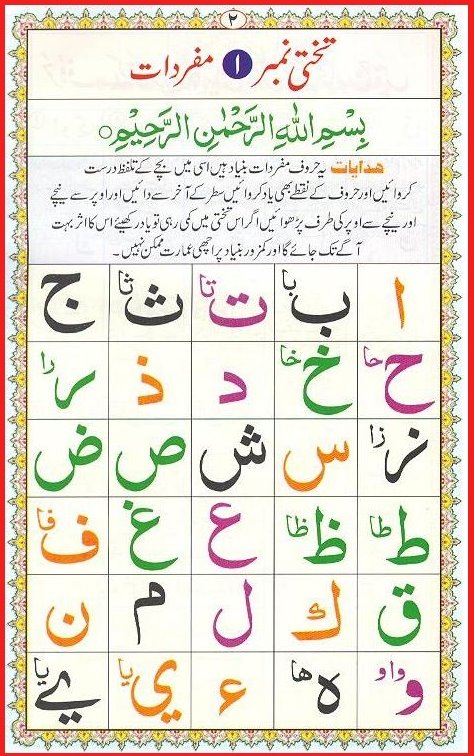 ۲
تختی نمبر ۱ مفردات
بِسْمِ اللهِ الرَّحْمٰنِ الرَّحِیْمِ ○
ھدایات یہ حروف مفردات بنیاد ہیں اسی میں بچے کے تلفظ درست
کروائیں اور حروف کے نقطے بھی یاد کروائیں سطر کے آخر سے دائیں اور اوپر سے نیچے
اور نیچے سے اوپر کی طرف پڑھوائیں اگر اس تختی میں کمی رہی تو یاد رکھیئے اس کا اثر بہت
آگے تک جائے گا اور کمزور بنیاد پر اچھی عمارت ممکن نہیں۔
ا ب با ت تا ث ثا ج
ح حا خ خا د ذ ر را
ز زا س ش ص ض
ط طا ظ ظا ع غ ف فا
ق ك ل م ن
و واو ہ ها ء ي يا ے يا